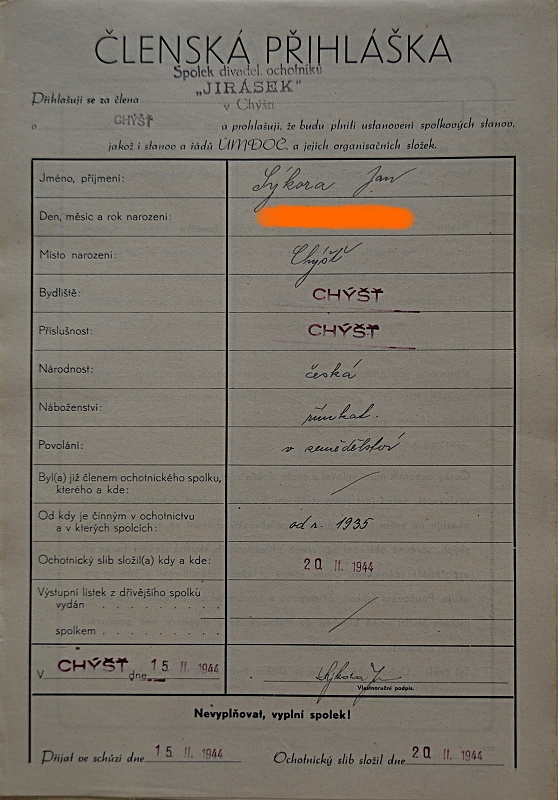 ČLENSKÁ PŘIHLÁŠKA
Spolek divadel. ochotníků
„JIRÁSEK"
Přihlašuji se za člena
v Chýšti
o CHÝŠŤ a prohlašuji, že budu plniti ustanovení spolkových stanov,
jakož i stanov a řádů ÚMDOČ. a jejich organisačních složek.
Jméno, příjmení: Sýkora Jan
Den, měsíc a rok narození:
Místo narození: Chýšť
Bydliště: CHÝŠŤ
Příslušnost: CHÝŠŤ
Národnost: česká
Náboženství: římkat.
Povolání: v zemědělství
Byl(a) již členem ochotnického spolku,
kterého a kde: /
Od kdy je činným v ochotnictvu
a v kterých spolcích: od r. 1935
Ochotnický slib složil(a) kdy a kde: 20 II. 1944
Výstupní lístek z dřívějšího spolku
vydán . . . . . . . . . . .
spolkem . . . . . . . . . . /
V CHÝŠŤ dne 15 II. 1944 Sýkora J.
Vlastnoruční podpis.
Nevyplňovat, vyplní spolek!
Přijat ve schůzi dne 15 II. 1944 Ochotnický slib složil dne 20 II. 1944